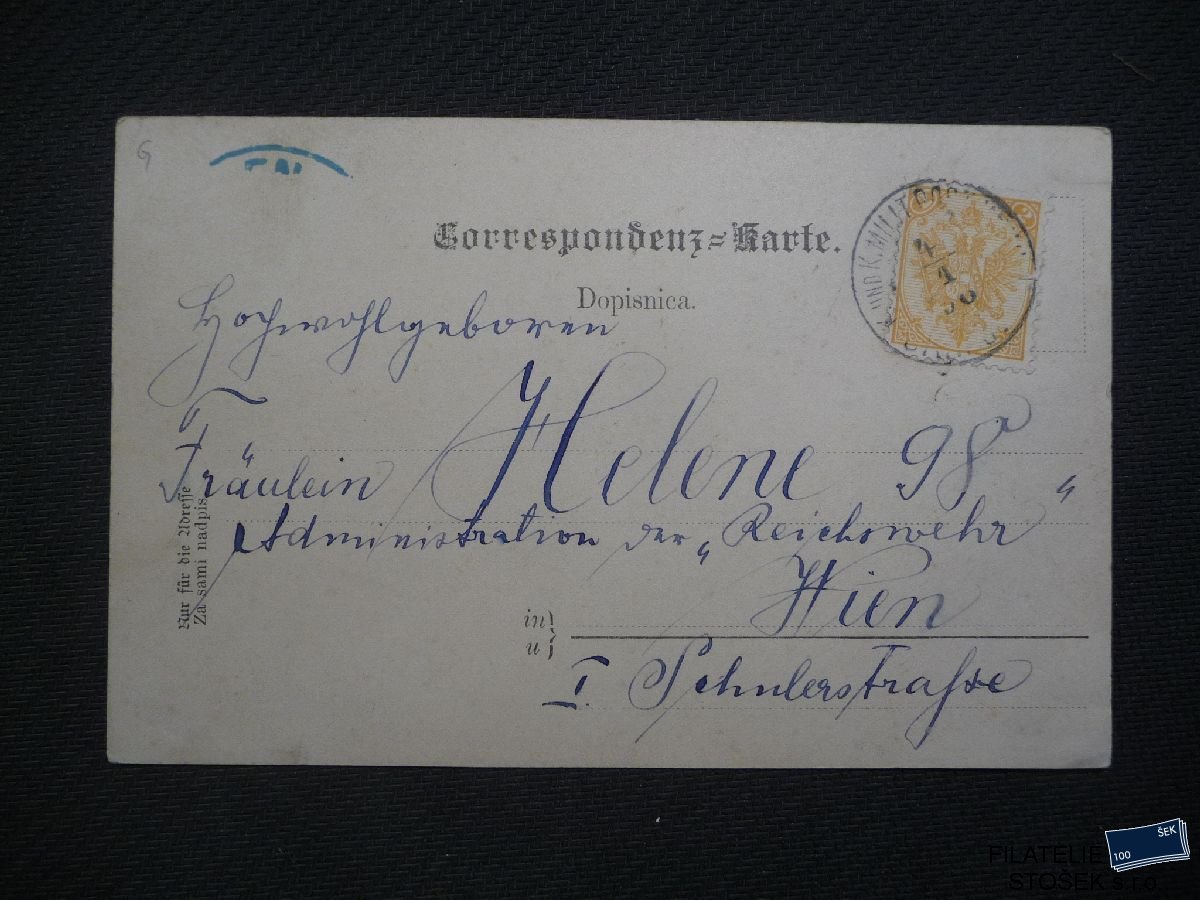 G
Correspondenz=Karte.
Dopisnica.
K. UND K. MILIT. POST
2
Hochwohlgeboren
Fräulein Helene 98
Administration der „Reichswehr"
Nur für die Adresse
Za sami nadpis
in
u
Wien
I. Schulerstraße
ŠEK
100
PHILATELIE
STOŠEK s.r.o.